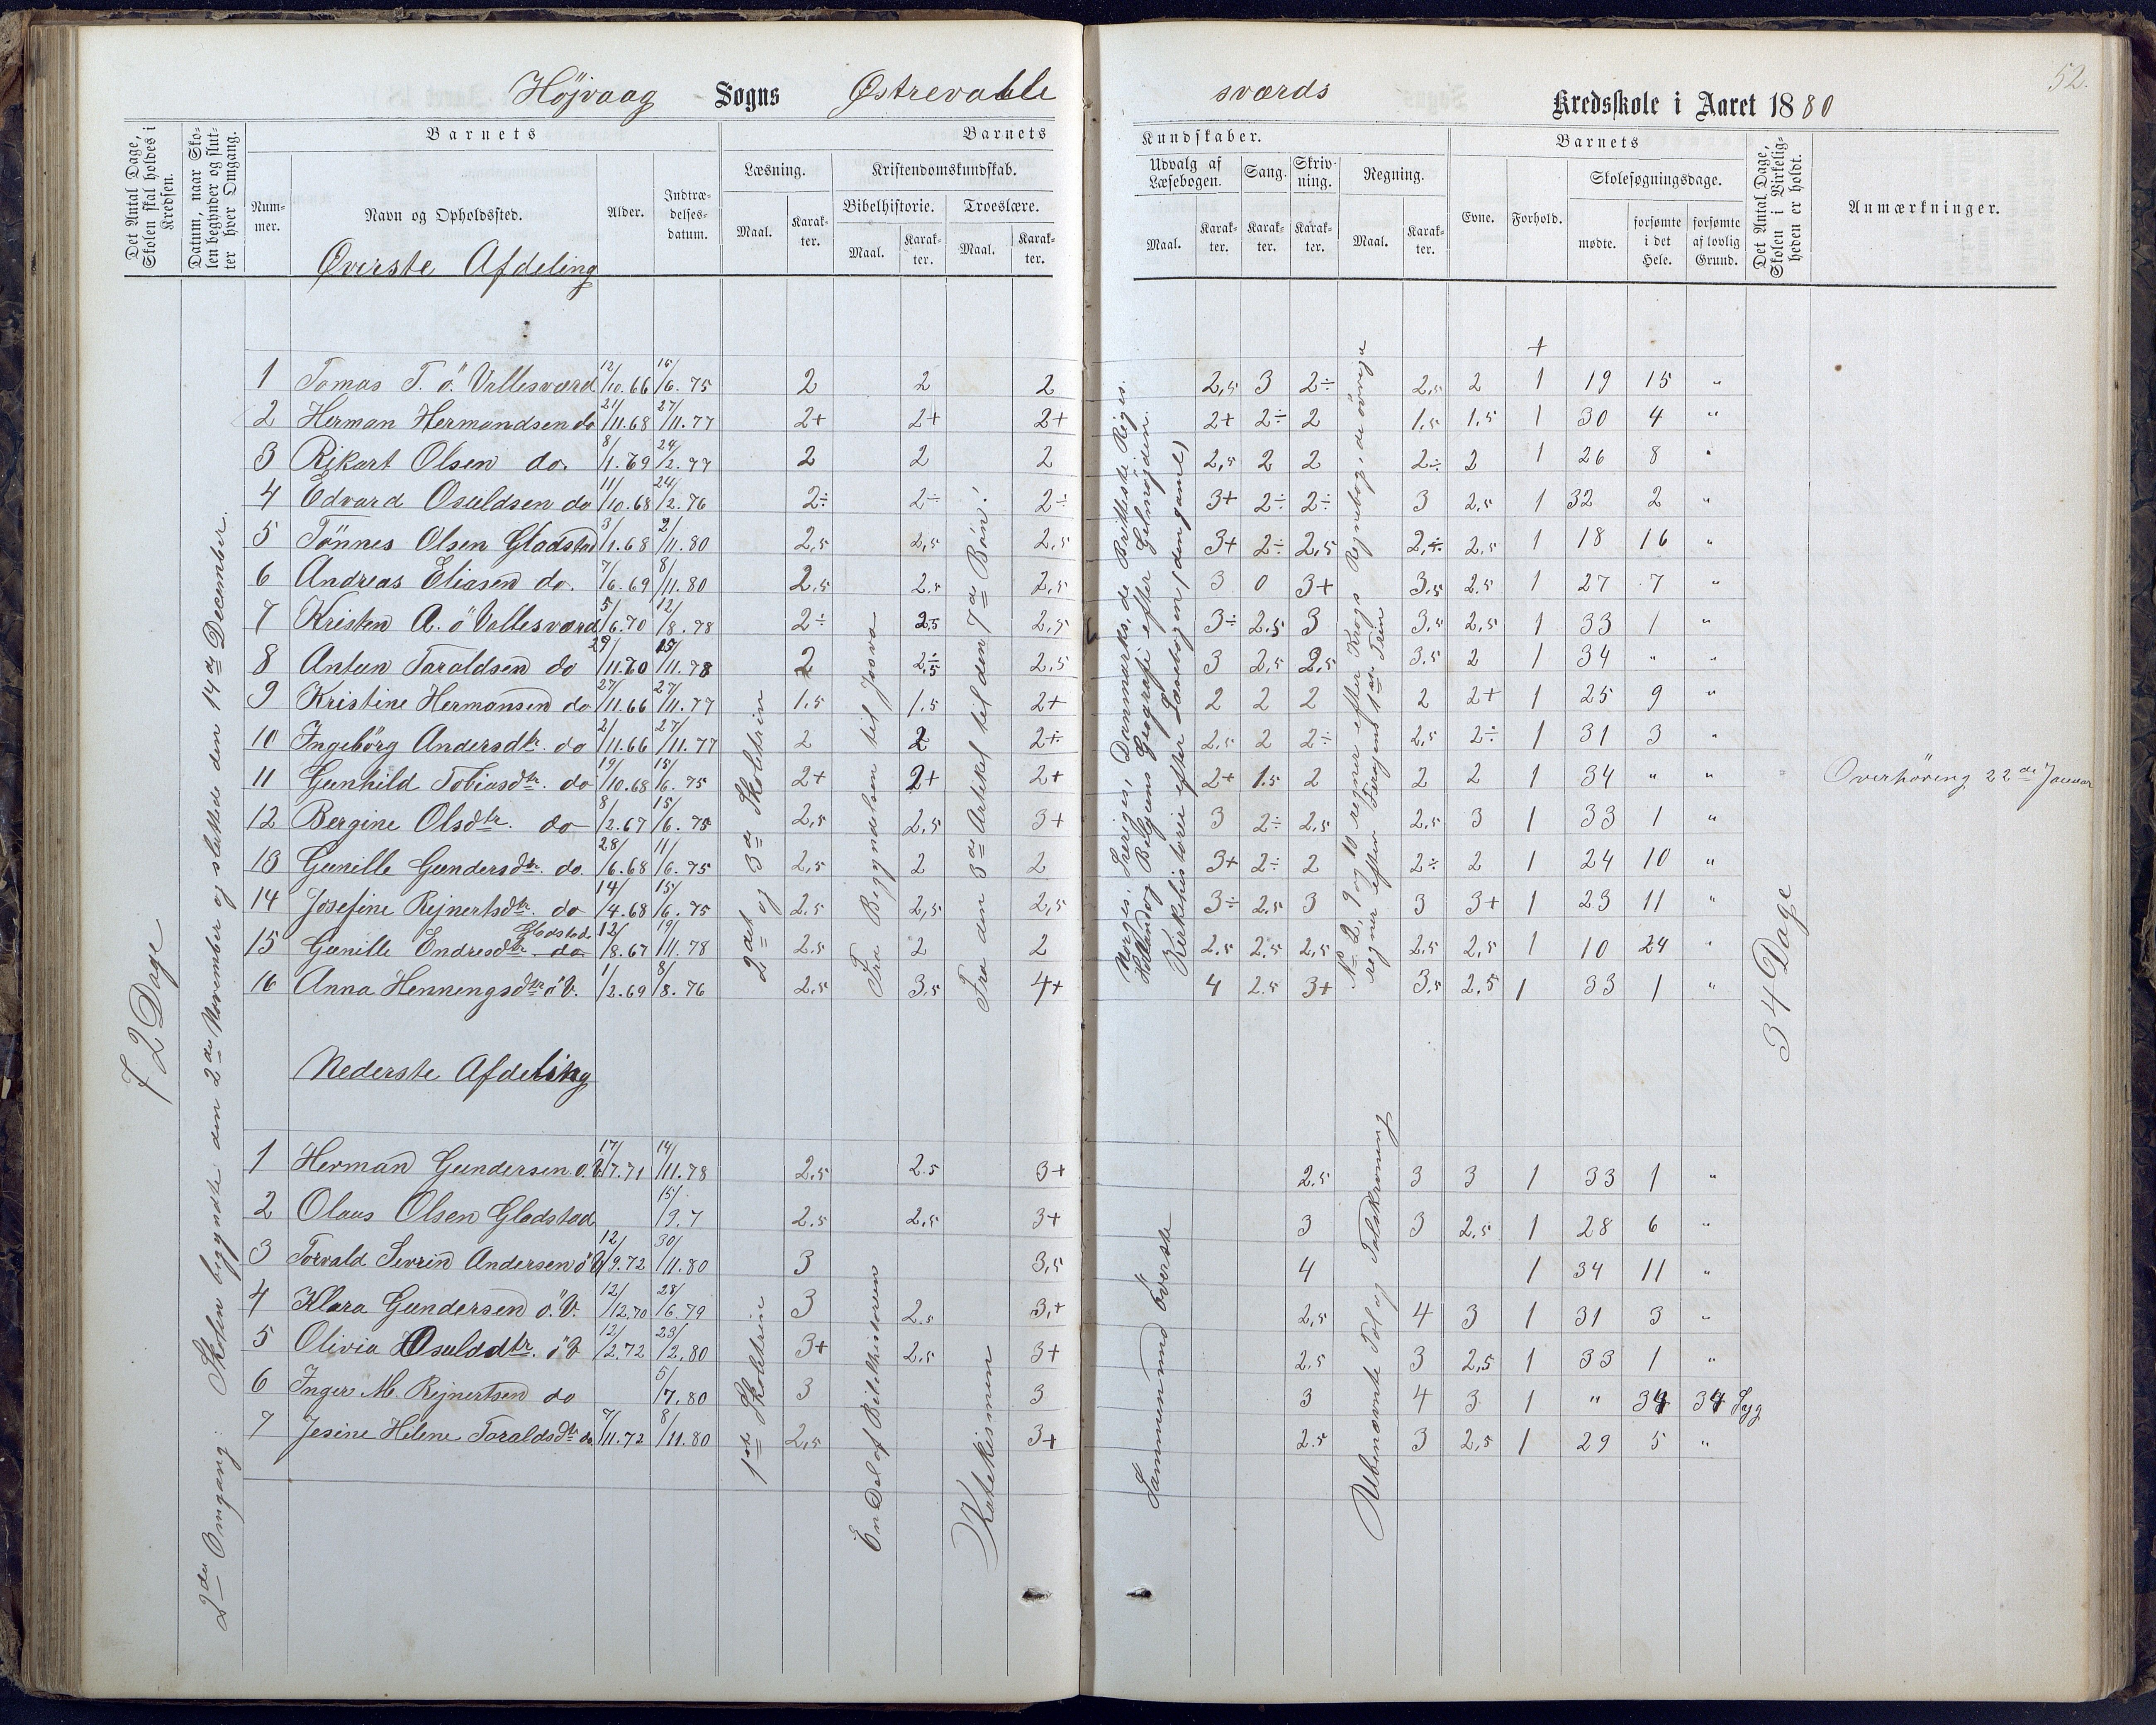 52.
Højvaag Sogns Østrevalle sværds Kredsskole i Aaret 1880
Det Antal Dage, Skolen skal holdes i Kredsen.
Datum, naar Skolen begynder og slutter hver Omgang.
Barnets
Nummer.
Navn og Opholdssted.
Alder.
Indtrædelsesdatum.
Barnets Kundskaber.
Læsning.
Maal.
Karakter.
Kristendomskundskab.
Bibelhistorie.
Maal.
Karakter.
Troeslære.
Maal.
Karakter.
Udvalg af Læsebogen.
Maal.
Karakter.
Sang.
Karakter.
Skrivning.
Karakter.
Regning.
Maal.
Karakter.
Barnets
Evne.
Forhold.
Skolesøgningsdage.
mødte.
forsømte i det Hele.
forsømte af lovlig Grund.
Det Antal Dage, Skolen i Virkeligheden er holdt.
Anmærkninger.
Øverste Afdeling
+
1 Tomas T. ö. Vallesværd 12/10.66 15/6.75 2 2 2 2,5 3 2÷ 2,5 2 1 19 15 "
2 Herman Hermandsen do 21/11.68 27/11.77 2+ 2+ 2+ 2+ 2÷ 2 1.5 1.5 1 30 4 "
3 Rikart Olsen do. 8/1.69 24/2.77 2 2 2 2,5 2 2 2÷ 2 1 26 8 "
4 Edvard Osuldsen do 11/10.68 24/2.76 2÷ 2÷ 2÷ 3+ 2÷ 2÷ 3 2,5 1 32 2 "
5 Tönnes Olsen Gladstad 3/1.68 2/11.80 2,5 2,5 2,5 3+ 2÷ 2,5 2÷ 2.5 1 18 16 "
6 Andreas Eliasen do. 7/6.69 8/11.80 2,5 2.5 2,5 3 0 3+ 3,5 2.5 1 27 7 "
7 Kristen A. ö Vallesværd 5/6.70 12/8.78 2÷ 2.5 2,5 3÷ 2.5 3 3,5 2,5 1 33 1 "
8 Antun Taraldsen do 29/11.70 15/11.78 2 2,5 2,5 3 2,5 2,5 3.5 2 1 34 " "
9 Kristine Hermansen do 27/11.66 27/11.77 1.5 1.5 2+ 2 2 2 2 2+ 1 25 9 "
10 Ingebörg Andersdtr. do 2/11.66 27/11.77 2 2 2÷ 2.5 2 2÷ 2,5 2÷ 1 31 3 "
11 Gunhild Tobiasdtr. do 19/10.68 15/6.75 2+ 2+ 2+ 2+ 1.5 2 2 2 1 34 " "
Overhöring 22de Januar
12 Bergine Olsdtr. do 8/2.67 15/6.75 2,5 2,5 3+ 3 2÷ 2,5 2,5 3 1 33 1 "
13 Gunille Gundersdtr. do. 28/6.68 11/6.75 2,5 2 2 3+ 2÷ 2 2÷ 2 1 24 10 "
14 Josefine Rejnertsdtr. do 14/4.68 15/6.75 2.5 2,5 2,5 3÷ 2,5 3 3 3+ 1 23 11 "
15 Gunille Endresdtr. Gladstad 12/8.67 19/11.78 2.5 2 2 2.5 2.5 2,5 2,5 2,5 1 10 24 "
16 Anna Henningsdtr ö V. 1/2.69 8/8.76 2.5 3.5 4+ 4 2.5 3+ 3,5 2.5 1 33 1 "
Nederste Afdeling
1 Herman Gundersen ö. V. 17/7.71 14/11.78 2.5 2.5 3+ 2.5 3 3 1 33 1 "
2 Olaus Olsen Gladstad 15/9.7 2.5 2,5 3+ 3 3 2,5 1 28 6 "
3 Torvald Sevrin Andersen ö V 12/9.72 30/11.80 3 3,5 4 1 34 11 "
4 Klara Gundersen ö. V. 12/12.70 28/6.79 3 2.5 3+ 2,5 4 3 1 31 3 "
5 Olivia Osuldsdtr. ö V 12/2.72 23/2.80 3+ 2.5 3+ 2.5 3 2,5 1 33 1 "
6 Inger M. Rejnertsen do 5/7.80 3 3 3 4 3 1 " 34 34 Syg
7 Jesine Helene Taraldsdtr do 7/11.72 8/11.80 2,5 3+ 2.5 3 2,5 1 29 5 "
72 Dage
2den Omgang: Skolen begyndte den 2den November og sluttede den 14de December.
2det og 3de Skoletrin
Fra Begyndelsen til Josva
Fra den 3de Artikel til den 7de Bön.
Norges, Sveriges, Danmarks, de Brittiske Riges
Holland og Belgiens Geografi efter Geelmuyden.
Kirkehistorie efter Læsebogen (den gaml.)
No 2, 9 og 10 regner efter Krogs Regnebog, de övrige
regner efter 1ste Trin
34 Dage
1ste Skoletrin
En Del af Bibelhistorien
Katekismen
Sammen med överste
Ubenævnte Tal og Talskrivning